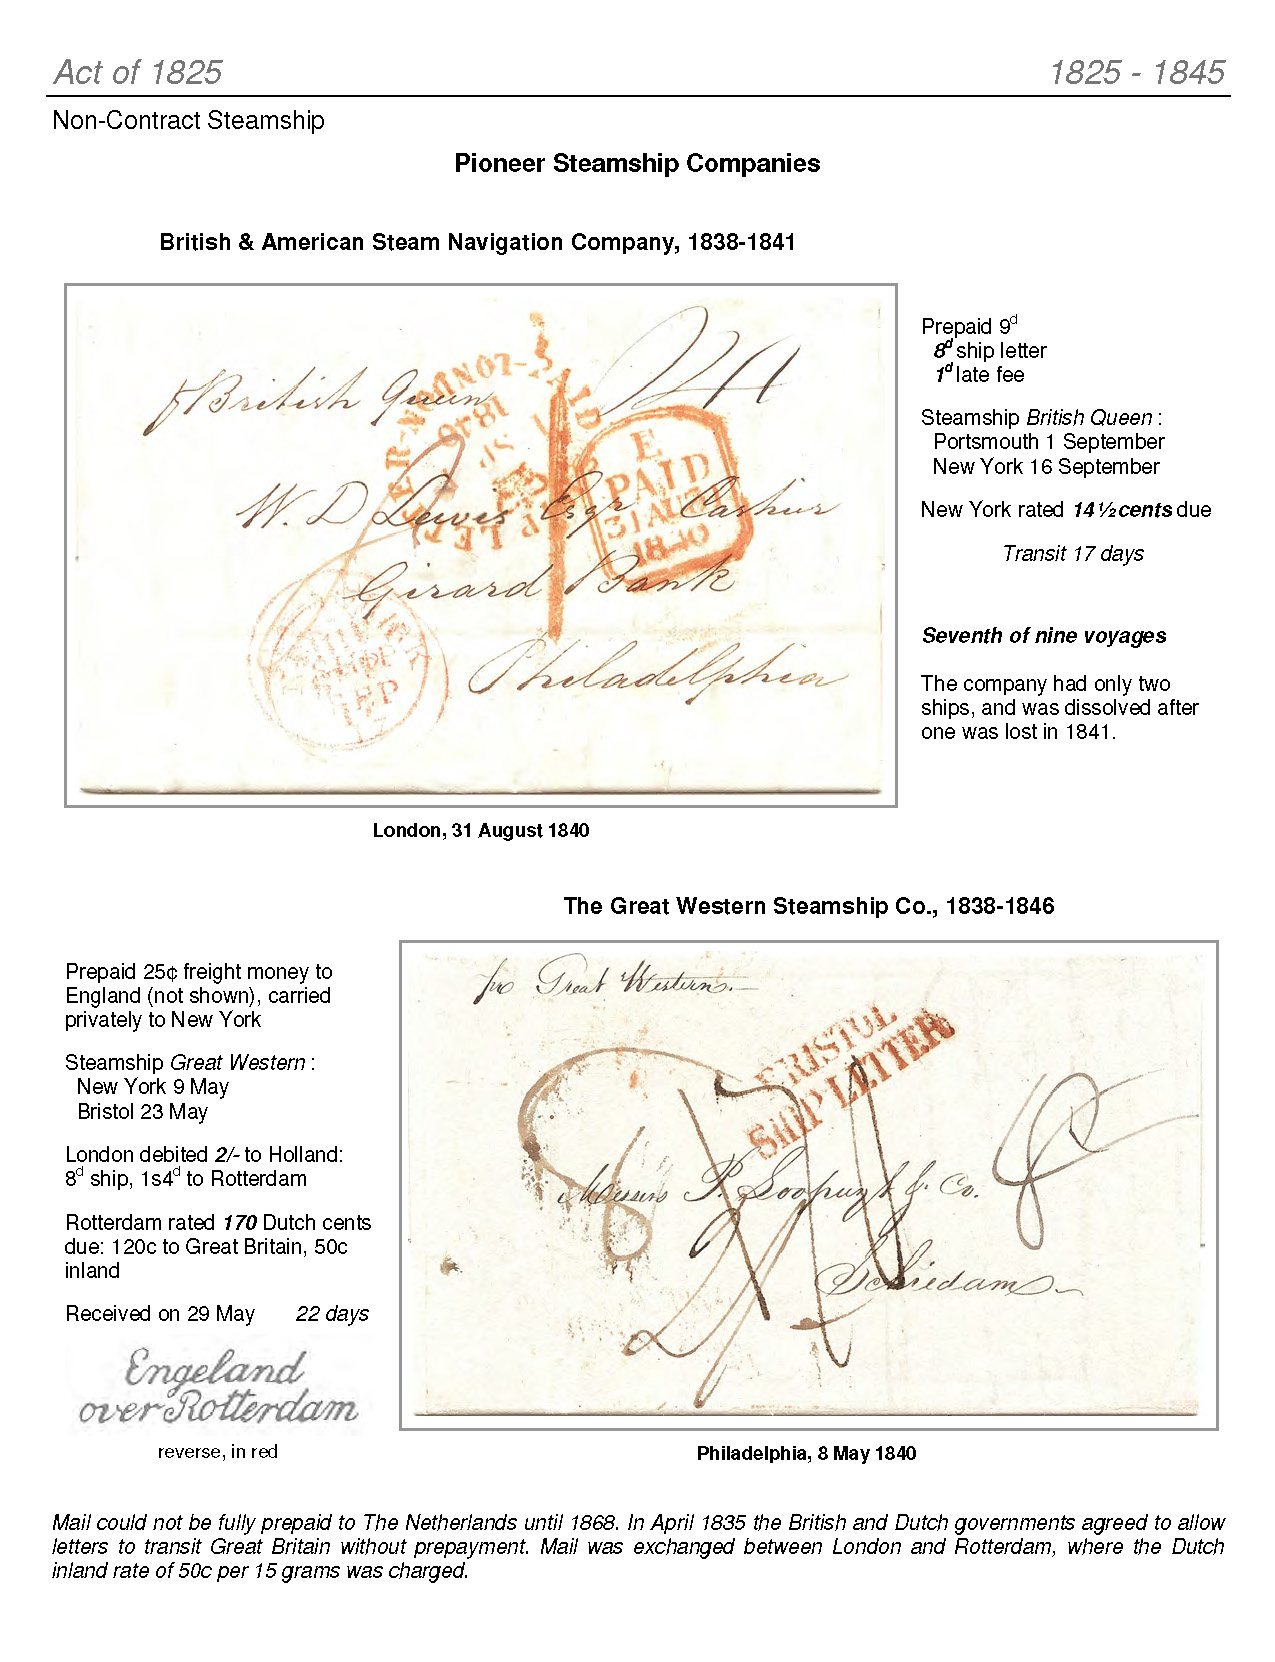 Act of 1825
1825 - 1845
Non-Contract Steamship
Pioneer Steamship Companies
British & American Steam Navigation Company, 1838-1841
p British Queen
W. D Lewis Esqr Cashier
Girard Bank
Philadelphia
E
PAID
31 AU
1840
SHIP
SEP
17
Prepaid 9d
8d ship letter
1d late fee
Steamship British Queen :
Portsmouth 1 September
New York 16 September
New York rated 14 ½ cents due
Transit 17 days
Seventh of nine voyages
The company had only two
ships, and was dissolved after
one was lost in 1841.
London, 31 August 1840
The Great Western Steamship Co., 1838-1846
Prepaid 25¢ freight money to
England (not shown), carried
privately to New York
Steamship Great Western :
New York 9 May
Bristol 23 May
London debited 2/- to Holland:
8d ship, 1s4d to Rotterdam
Rotterdam rated 170 Dutch cents
due: 120c to Great Britain, 50c
inland
Received on 29 May 22 days
Engeland
over Rotterdam
reverse, in red
pr Great Western.
BRISTOL
SHIP LETTER
Messrs P. & Co.
Schiedam
Philadelphia, 8 May 1840
Mail could not be fully prepaid to The Netherlands until 1868. In April 1835 the British and Dutch governments agreed to allow
letters to transit Great Britain without prepayment. Mail was exchanged between London and Rotterdam, where the Dutch
inland rate of 50c per 15 grams was charged.